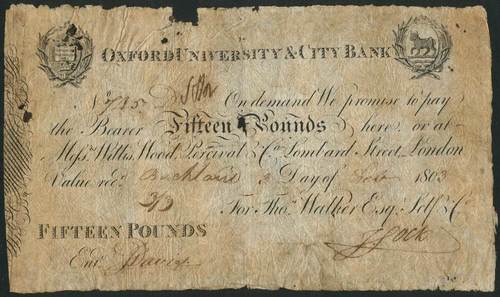 OXFORD UNIVERSITY & CITY BANK
No 715 On demand We promise to pay
the Bearer Fifteen Pounds here or at
Messrs. Willis, Wood, Percival & Co. Lombard Street, London
Value recd. 3 Day of 1803
For Thos. Walker Esq. Self & Co.
FIFTEEN POUNDS
Entd.